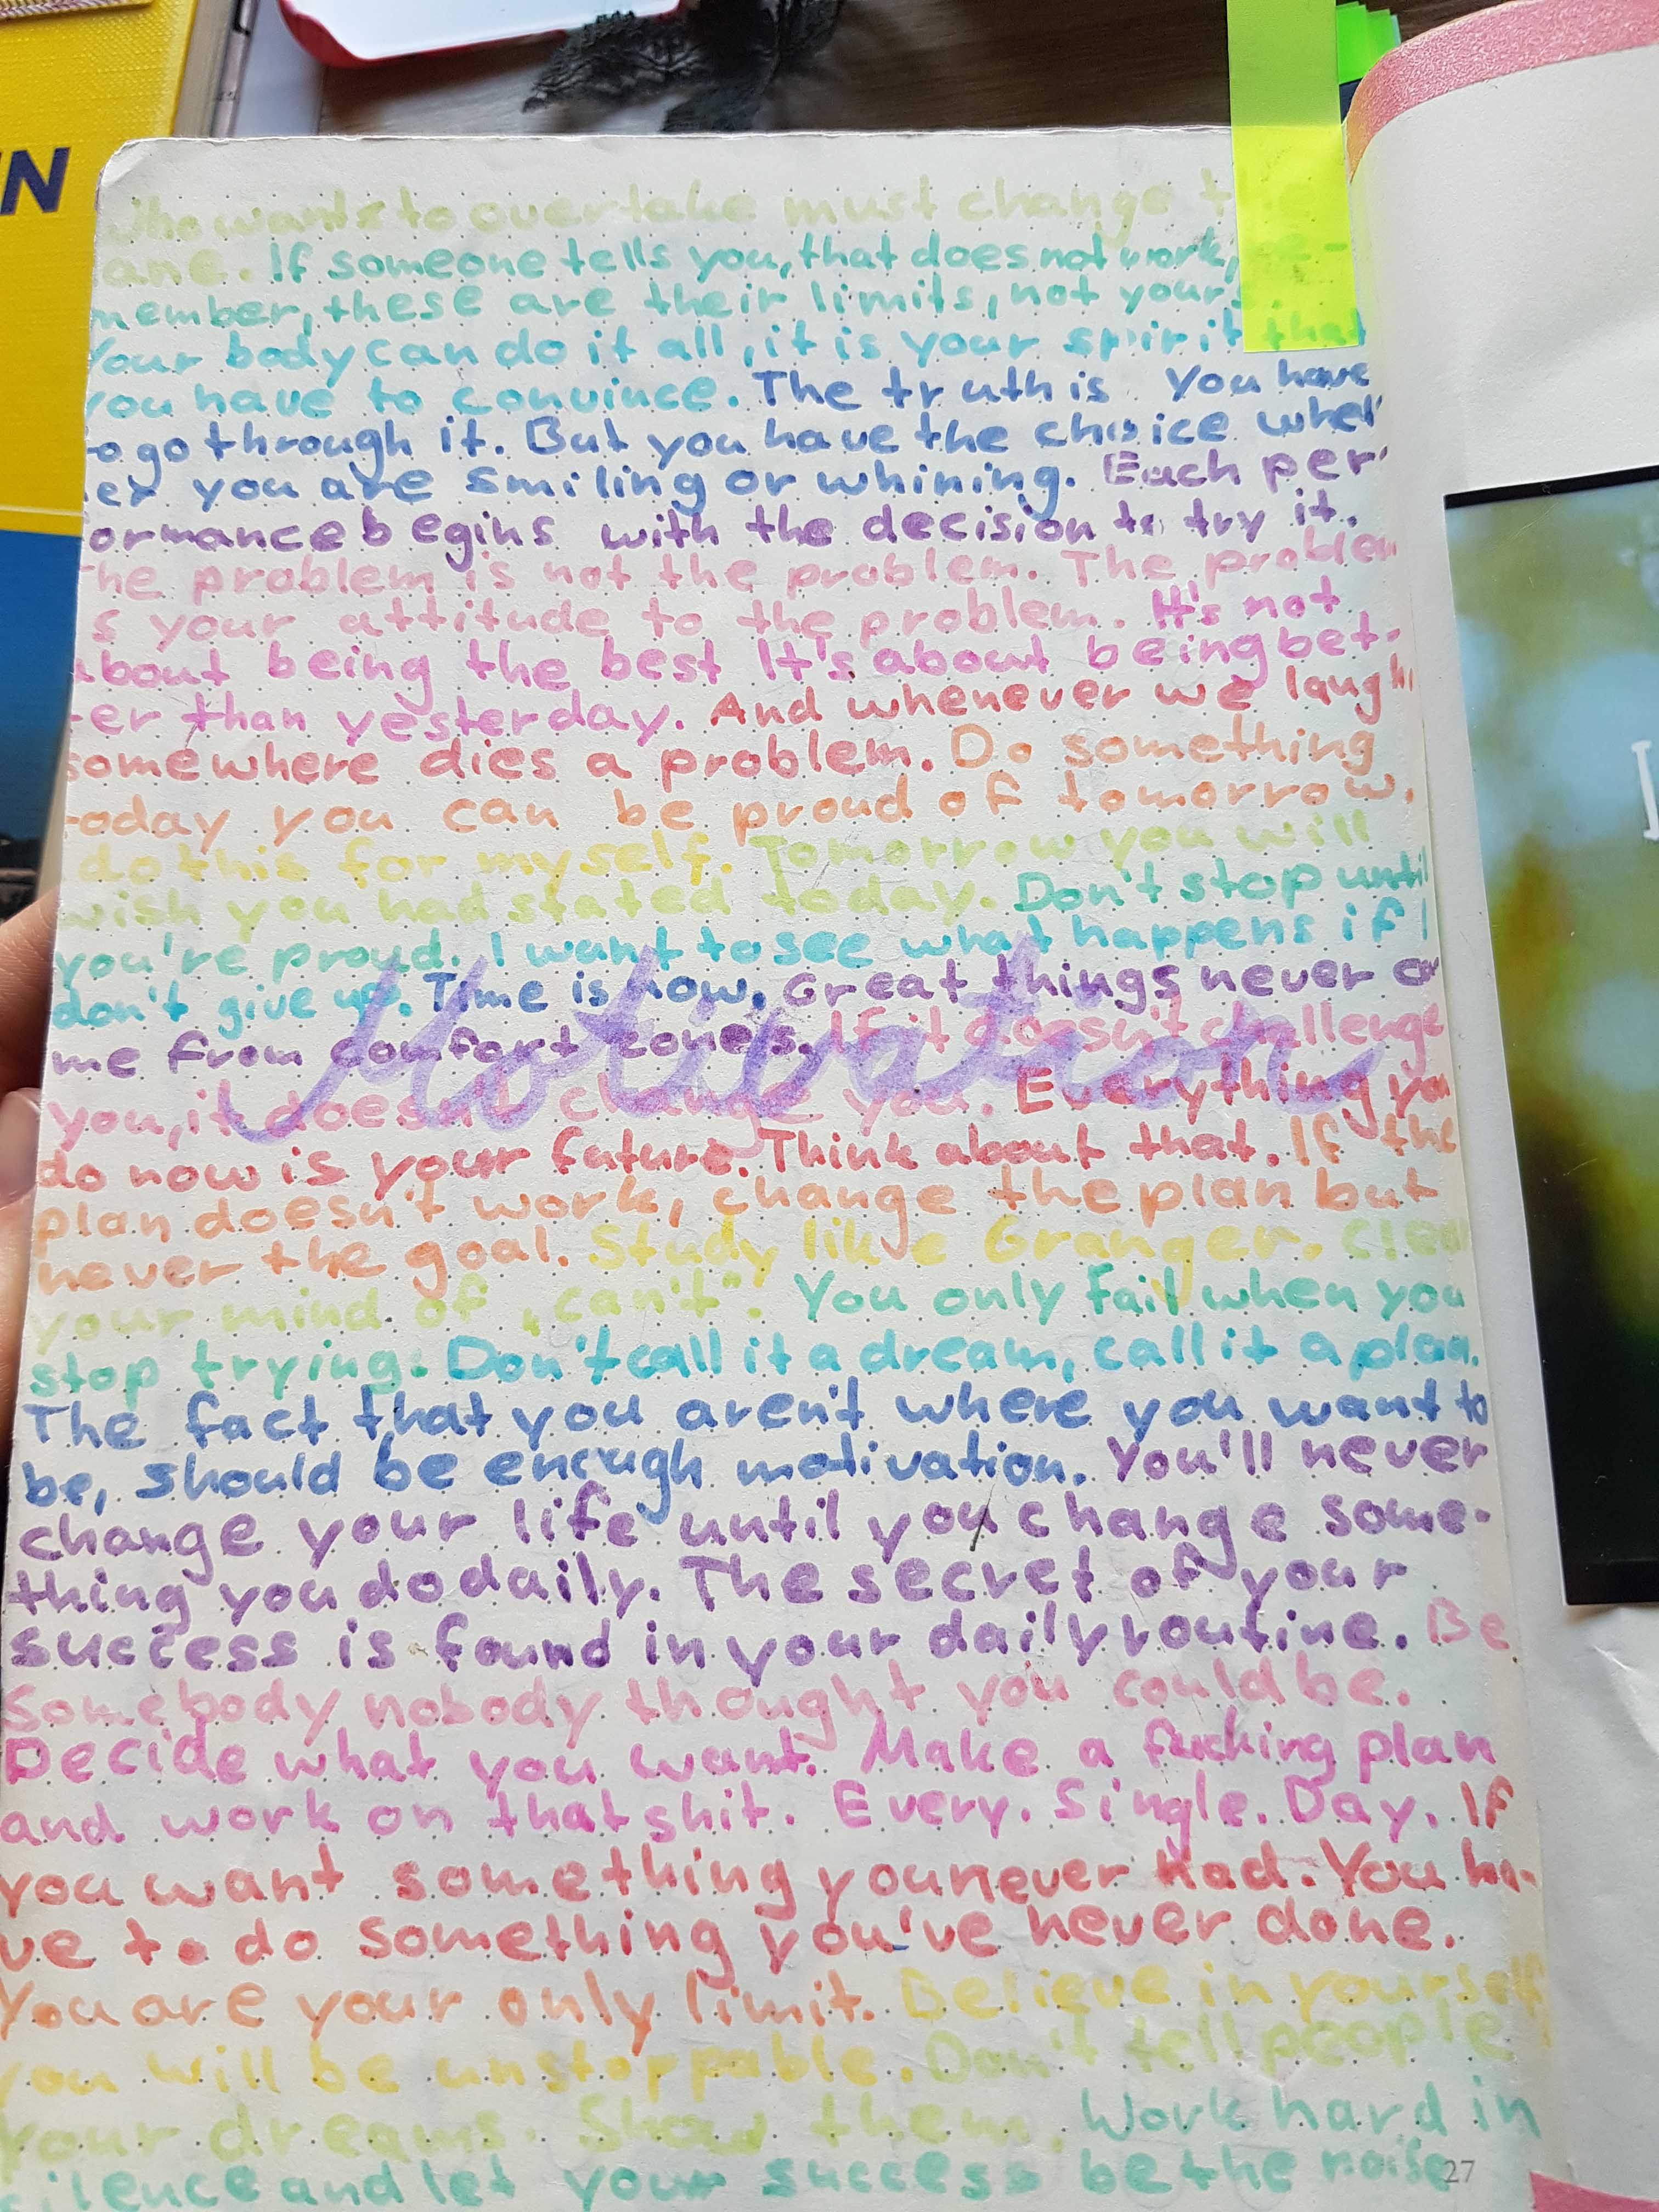 N
Who wants to overtake must change the
ane. If someone tells you, that does not work, re-
member, these are their limits, not yours.
Your body can do it all, it is your spirit that
you have to convince. The truth is you have
to go through it. But you have the choice whet
er you are smiling or whining. Each per
ormance begins with the decision to try it.
The problem is not the problem. The problem
s your attitude to the problem. It's not
about being the best It's about being bet-
ter than yesterday. And whenever we laugh
somewhere dies a problem. Do something
today you can be proud of tomorrow.
do this for myself. Tomorrow you will
wish you had stated today. Don't stop until
you're proud. I want to see what happens if I
don't give up. Time is now. Great things never co
me from comfort zones. If it doesn't challenge
Motivation
you, it doesn't change you. Everything you
do now is your future. Think about that. If the
plan doesn't work, change the plan but
never the goal. Study like Granger. Clea
your mind of „can't". You only fail when you
stop trying. Don't call it a dream, call it a plan.
The fact that you aren't where you want to
be, should be enough motivation. You'll never
change your life until you change some-
thing you do daily. The secret of your
success is found in your daily routine. Be
Somebody nobody thought you could be.
Decide what you want. Make a fucking plan
and work on that shit. Every. Single. Day. If
you want something you never had. You ha-
ve to do something you've never done.
You are your only limit. Believe in yourself
you will be unstoppable. Don't tell people
your dreams. Show them. Work hard in
silence and let your success be the noise
27